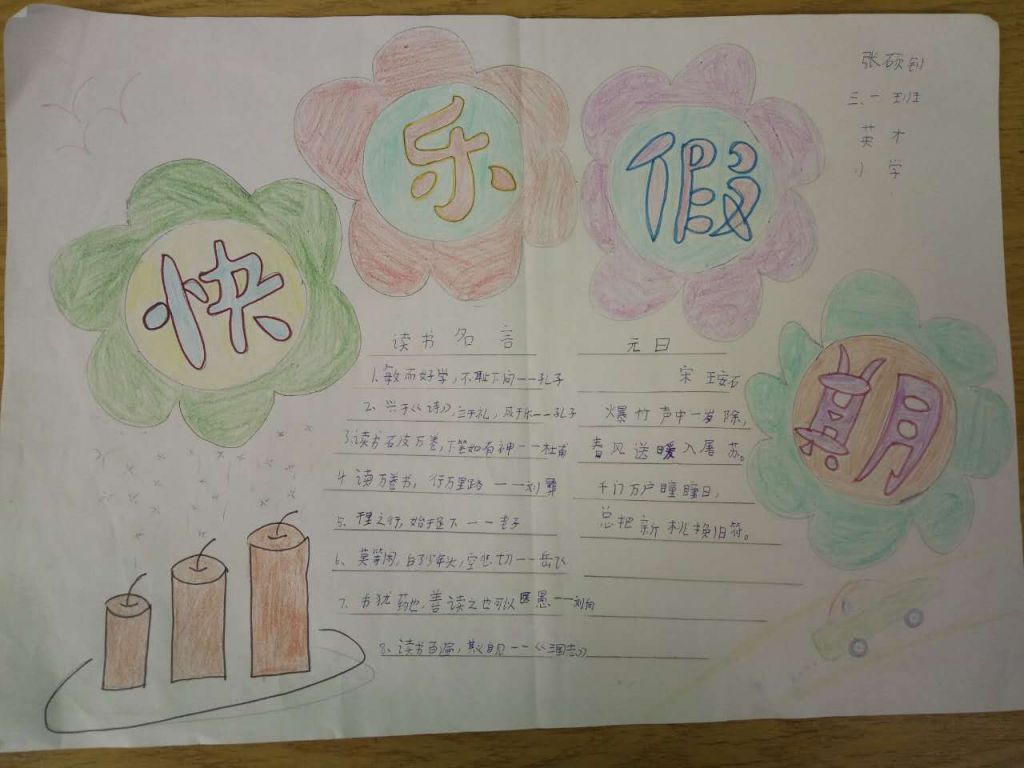 快乐假期
张硕
三、一班
英才
小学
读书名言
1.敏而好学，不耻下问——孔子
2、兴于《诗》，立于礼，成于乐——孔子
3.读书破万卷，下笔如有神——杜甫
4、读万卷书，行万里路——刘彝
5、千里之行，始于足下——老子
6、莫等闲，白了少年头，空悲切——岳飞
7、书犹药也，善读之也可以医愚——刘向
8、读书百遍，其义自见——《三国志》
元日
宋 王安石
爆竹声中一岁除，
春风送暖入屠苏。
千门万户瞳瞳日，
总把新桃换旧符。